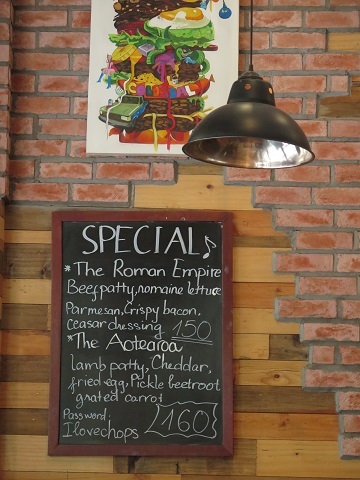 SPECIAL
* The Roman Empire
Beef patty, romaine lettuce
Parmesan, Crispy bacon,
Ceasar dressing 150
* The Aotearoa
lamb patty, Cheddar,
fried egg, Pickle beetroot
grated carrot
Password: 160
Ilovechops